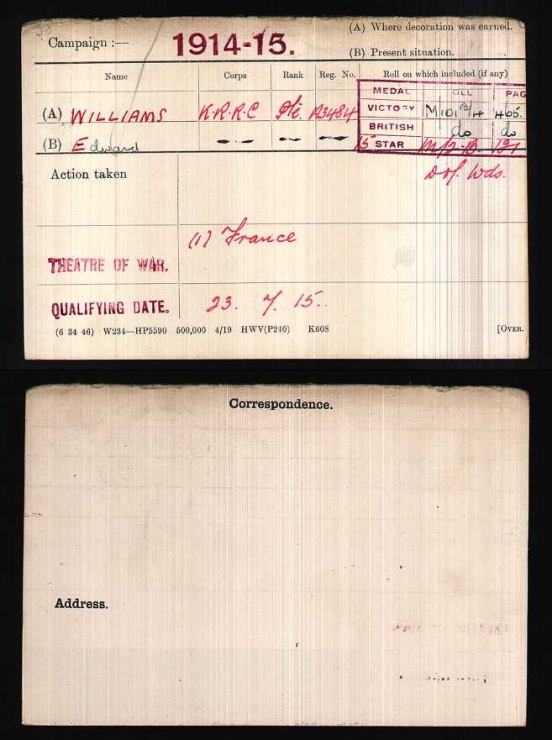 (A) Where decoration was earned.
Campaign :— 1914-15.
(B) Present situation.
Name Corps Rank Reg. No. Roll on which included (if any)
MEDAL ROLL PAG
(A) WILLIAMS K.R.R.C Pte. R3484 VICTORY M/101 B14 1405.
BRITISH do do
(B) Edward – – – – – – 15 STAR 121
Action taken D of Wds.
(1) France
THEATRE OF WAR.
QUALIFYING DATE. 23. 7. 15.
(6 34 46) W234—HP5590 500,000 4/19 HWV(P240) K608 [OVER.
Correspondence.
Address.